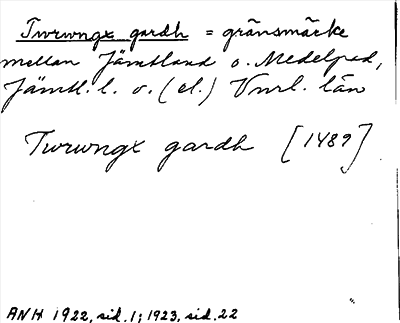 Twrwngx gardh = gränsmärke
mellan Jämtland o. Medelpad,
Jämtl. l. o. (el.) Vnrl. län
Twrwngx gardh [1489]
ANH 1922, sid. 1; 1923, sid. 22